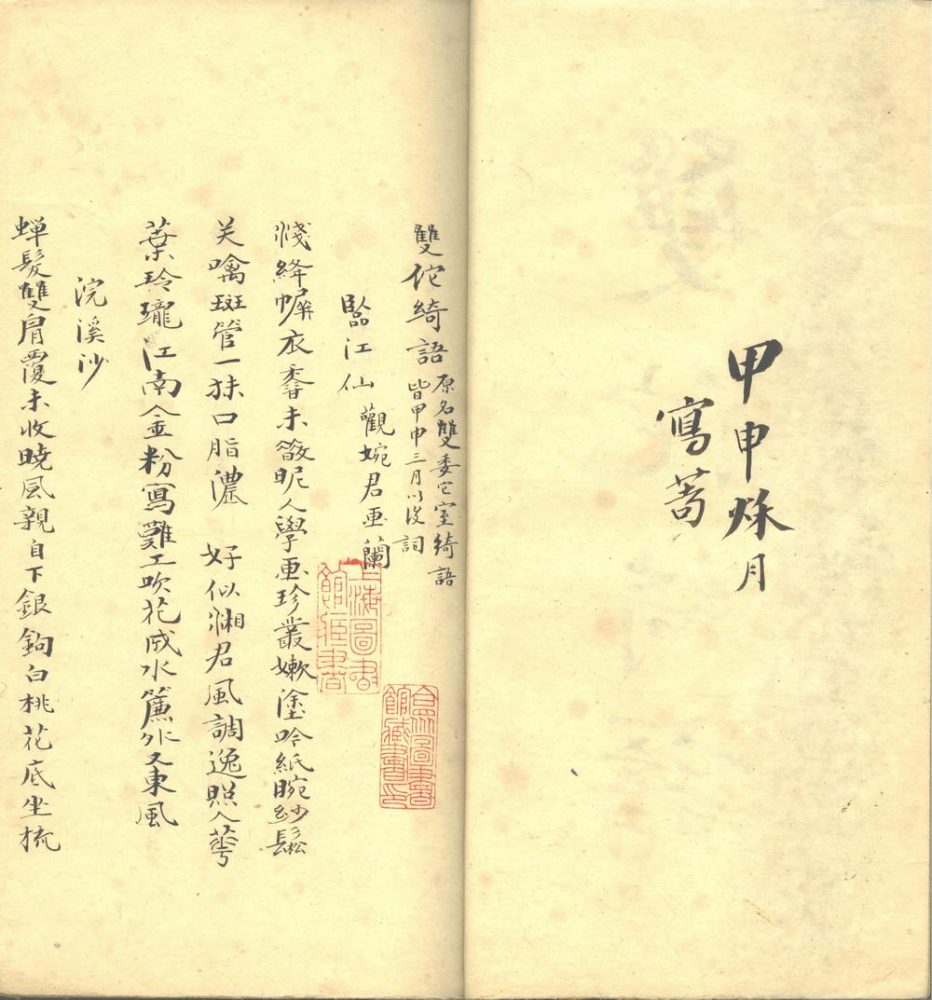 甲申烁月
寫蒿
雙佗綺語
原名雙委它室綺語
皆甲申三月以後詞
臨江仙
觀婉君画蘭
淺絳㡡衣香未斂昵人學画珍叢嫩塗吟紙腕紗鬆
笑噙斑管一抹口脂濃　好似湘君風調逸照人萼
葉玲瓏江南金粉寫難工吹花成水簾外又東風
浣溪沙
蟬髮雙肩覆未收曉風親自下銀鉤白桃花底坐梳
圖書
圖書
館藏書